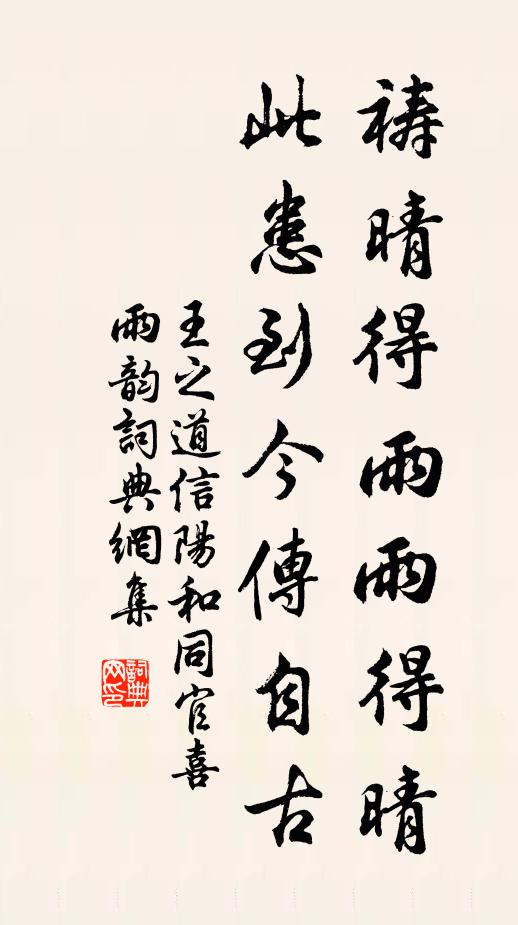 禱晴得雨雨得晴
此患到今傳自古
王之道信陽和同官喜
雨韵詞典網集
詞典网印